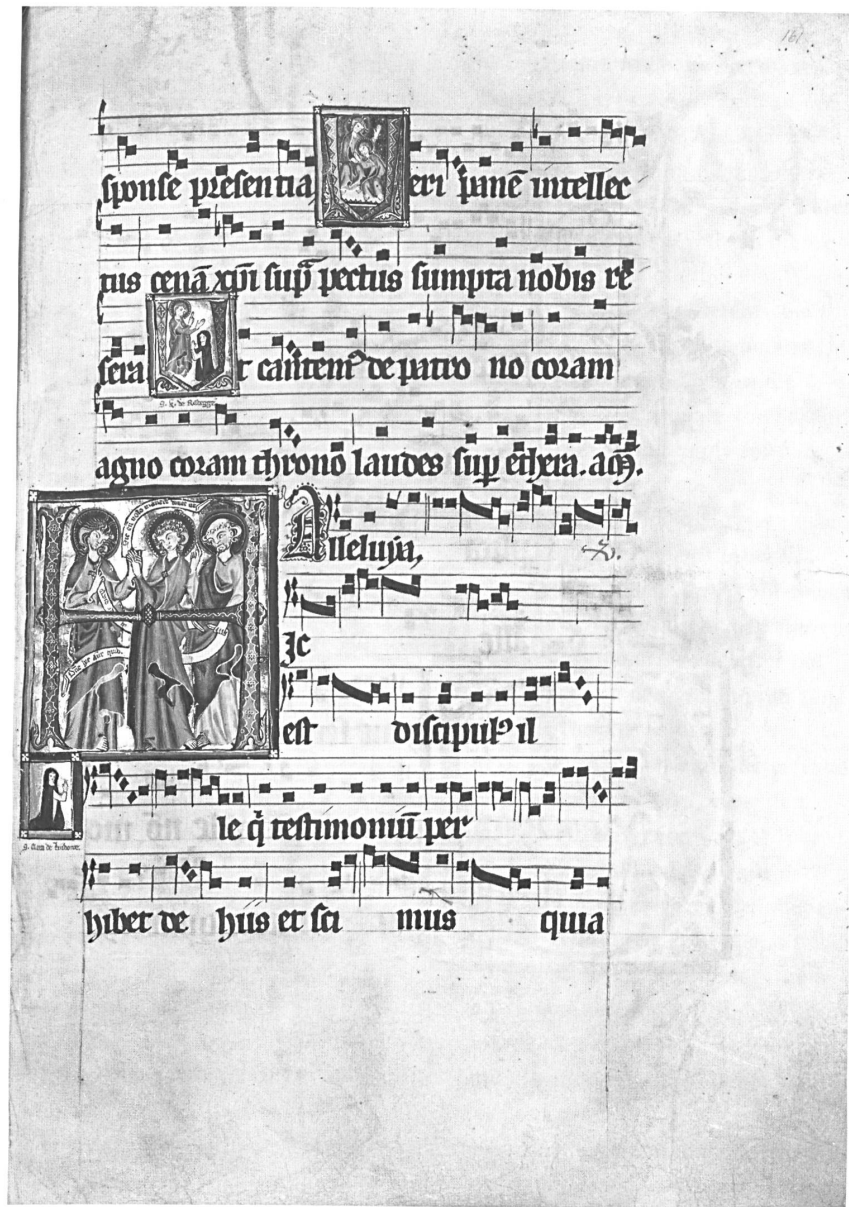 161
sponse presentia eri panē intellec
tus cenā xp̄i sup̄ pectus sumpta nobis re
sera t cantemꝰ de patro no coram
agno coram throno laudes sup ethera. am̄.
Alleluja,
Ic
est discipulꝰ il
le q̄ testimoniū per
hibet de hiis et sci mus quia